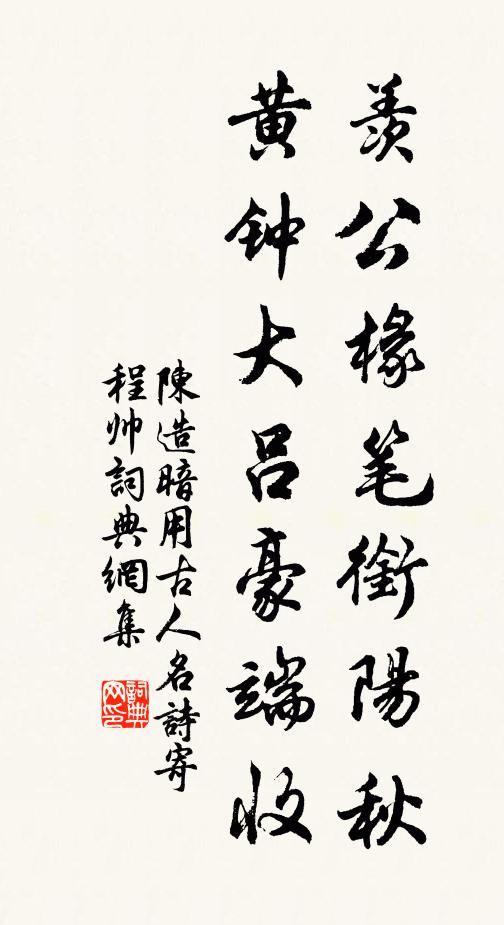 羨公椽笔銜陽秋
黄钟大吕豪端收
陳造暗用古人名詩寄
程帅詞典網集
詞典网印